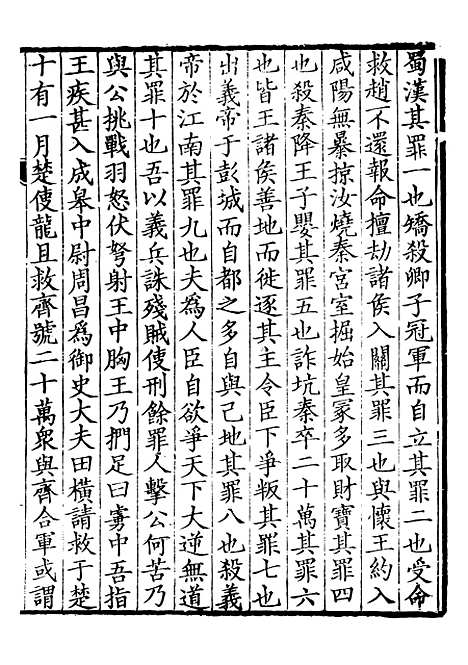 蜀漢其罪一也矯殺卿子冠軍而自立其罪二也受命
救趙不還報命擅劫諸侯入關其罪三也與懷王約入
咸陽無暴掠汝燒秦宮室掘始皇冢多取財寶其罪四
也殺秦降王子嬰其罪五也詐坑秦卒二十萬其罪六
也皆王諸侯善地而徙逐其主令臣下爭叛其罪七也
出義帝于彭城而自都之多自與己地其罪八也殺義
帝於江南其罪九也夫為人臣自欲爭天下大逆無道
其罪十也吾以義兵誅殘賊使刑餘罪人擊公何苦乃
與公挑戰羽怒伏弩射王中胸王乃捫足曰虜中吾指
王疾甚入成皋中尉周昌為御史大夫田橫請救于楚
十有一月楚使龍且救齊號二十萬眾與齊合軍或謂